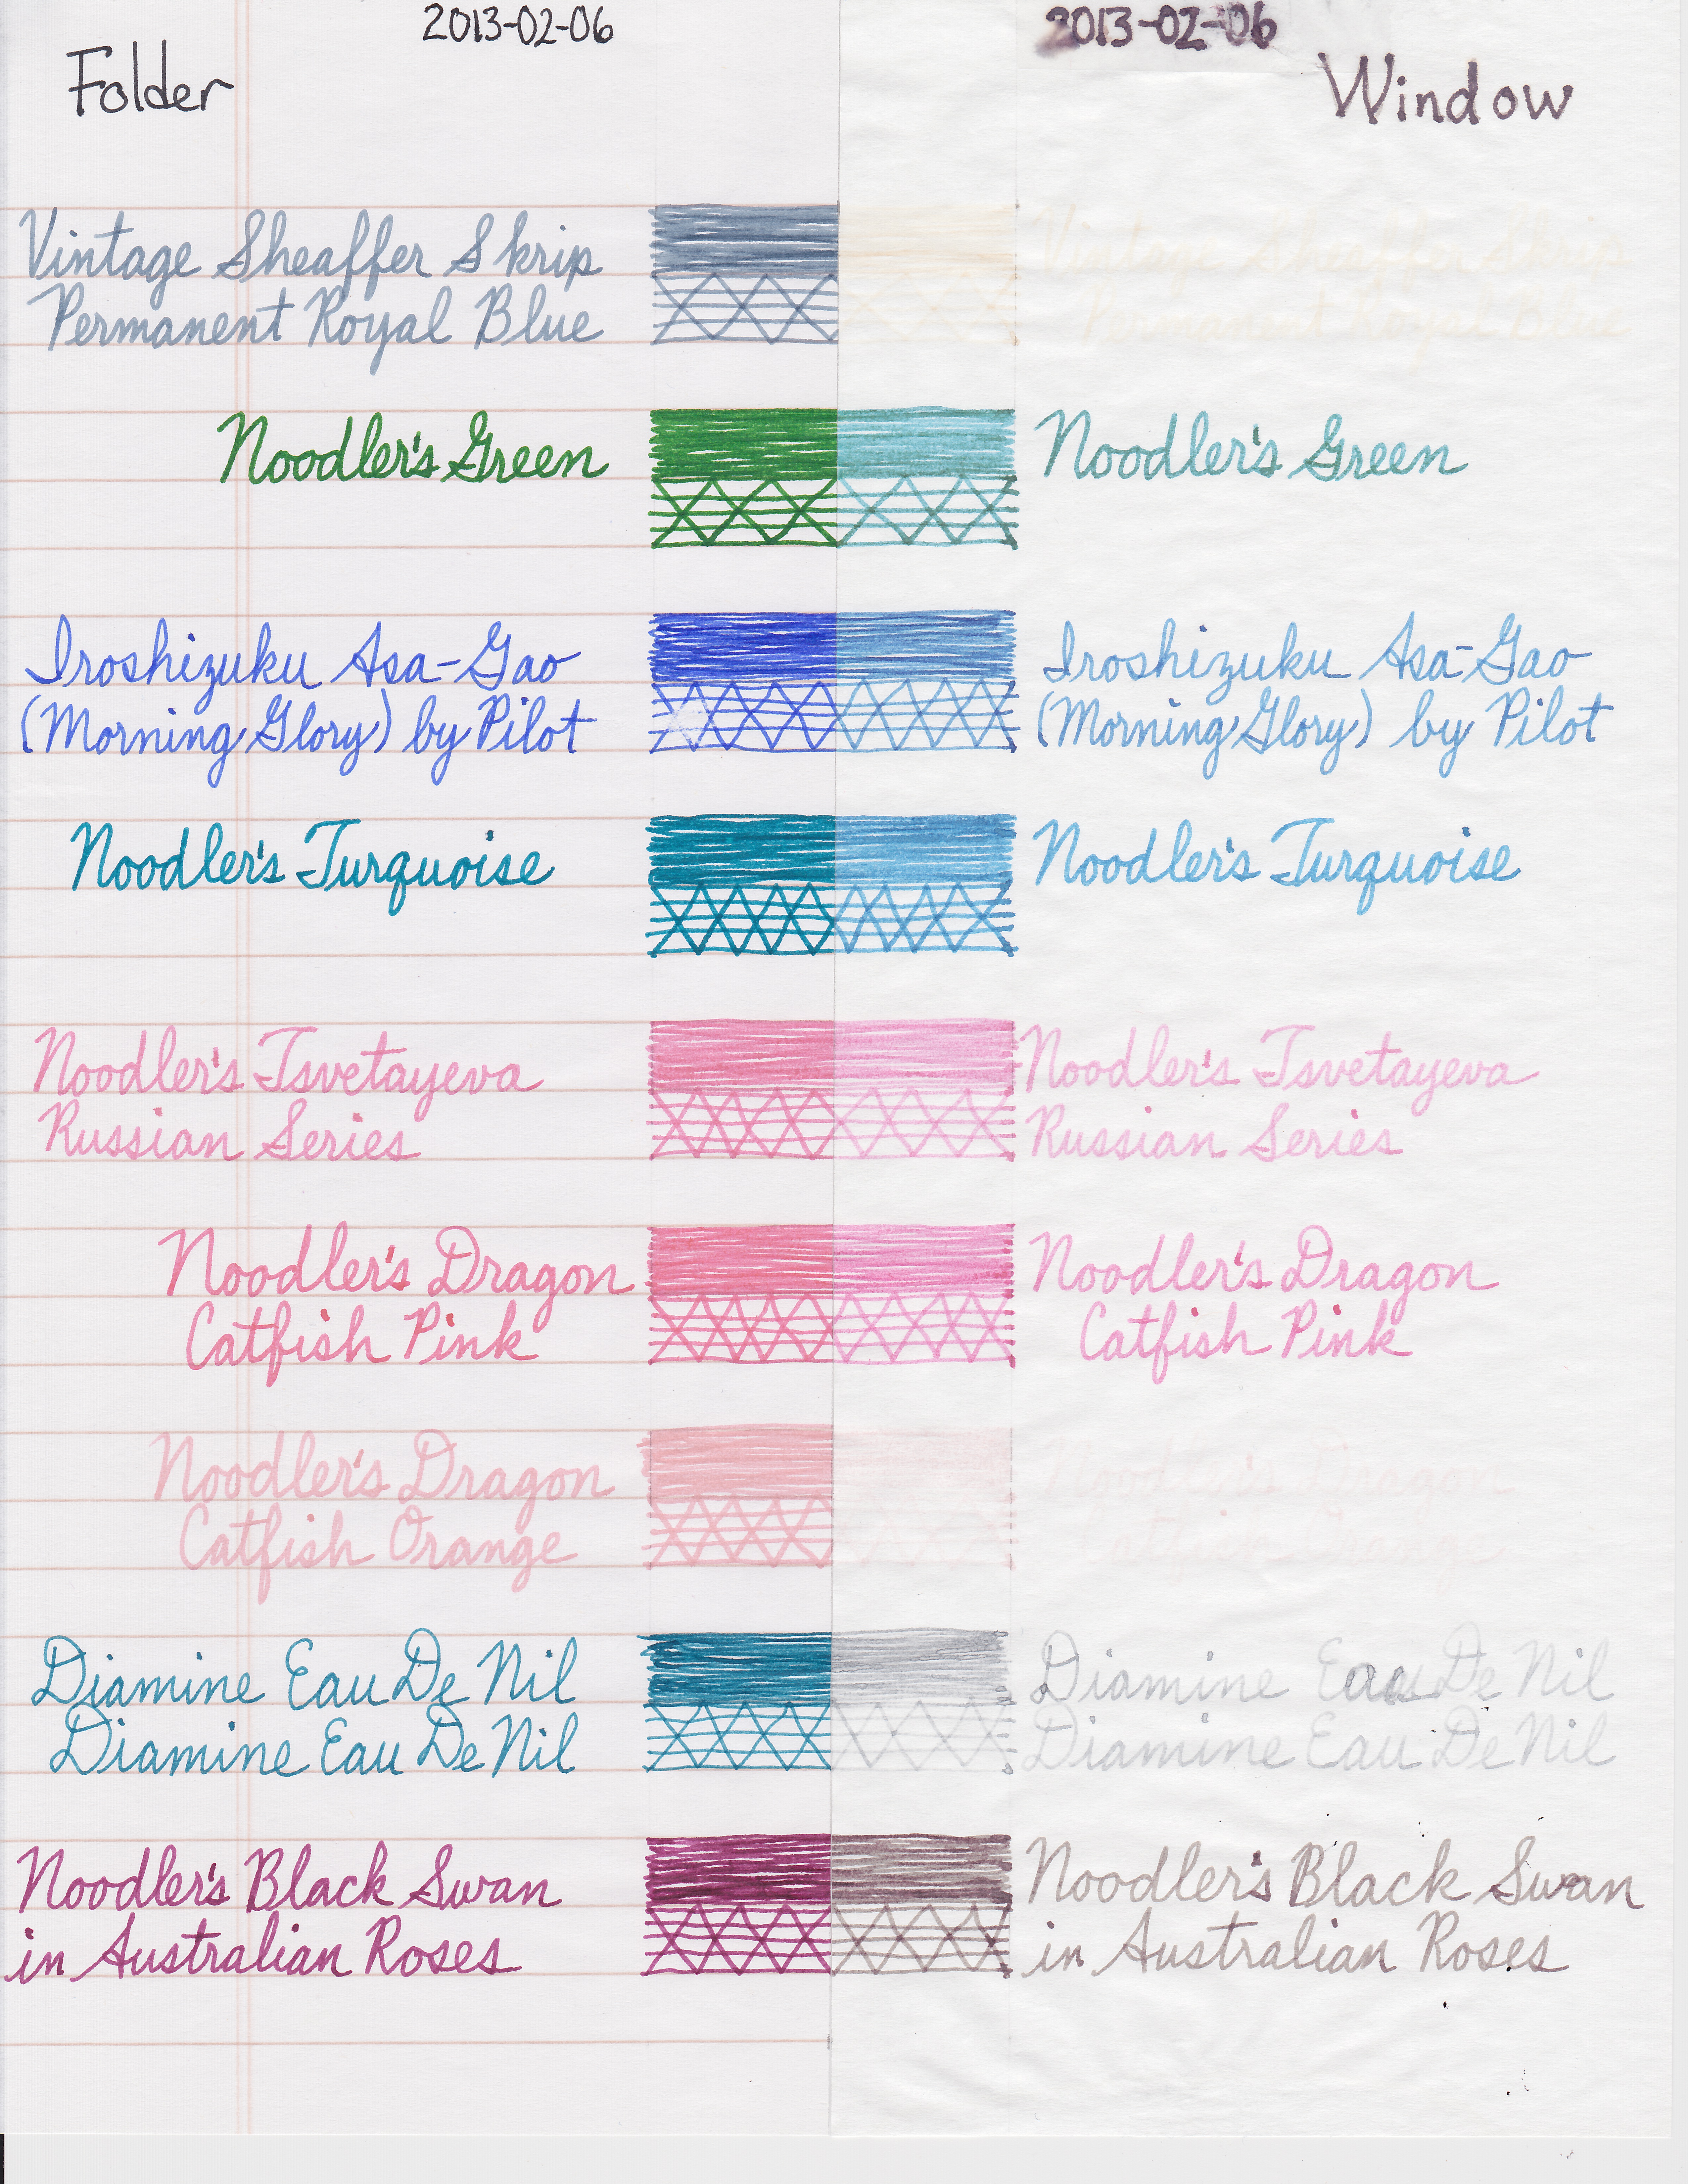 2013-02-06
Folder
Vintage Sheaffer Skrip
Permanent Royal Blue
Noodler's Green
Iroshizuku Asa-Gao
(Morning Glory) by Pilot
Noodler's Turquoise
Noodler's Tsvetayeva
Russian Series
Noodler's Dragon
Catfish Pink
Noodler's Dragon
Catfish Orange
Diamine Eau De Nil
Diamine Eau De Nil
Noodler's Black Swan
in Australian Roses
2013-02-06
Window
Vintage Sheaffer Skrip
Permanent Royal Blue
Noodler's Green
Iroshizuku Asa-Gao
(Morning Glory) by Pilot
Noodler's Turquoise
Noodler's Tsvetayeva
Russian Series
Noodler's Dragon
Catfish Pink
Noodler's Dragon
Catfish Orange
Diamine Eau De Nil
Diamine Eau De Nil
Noodler's Black Swan
in Australian Roses